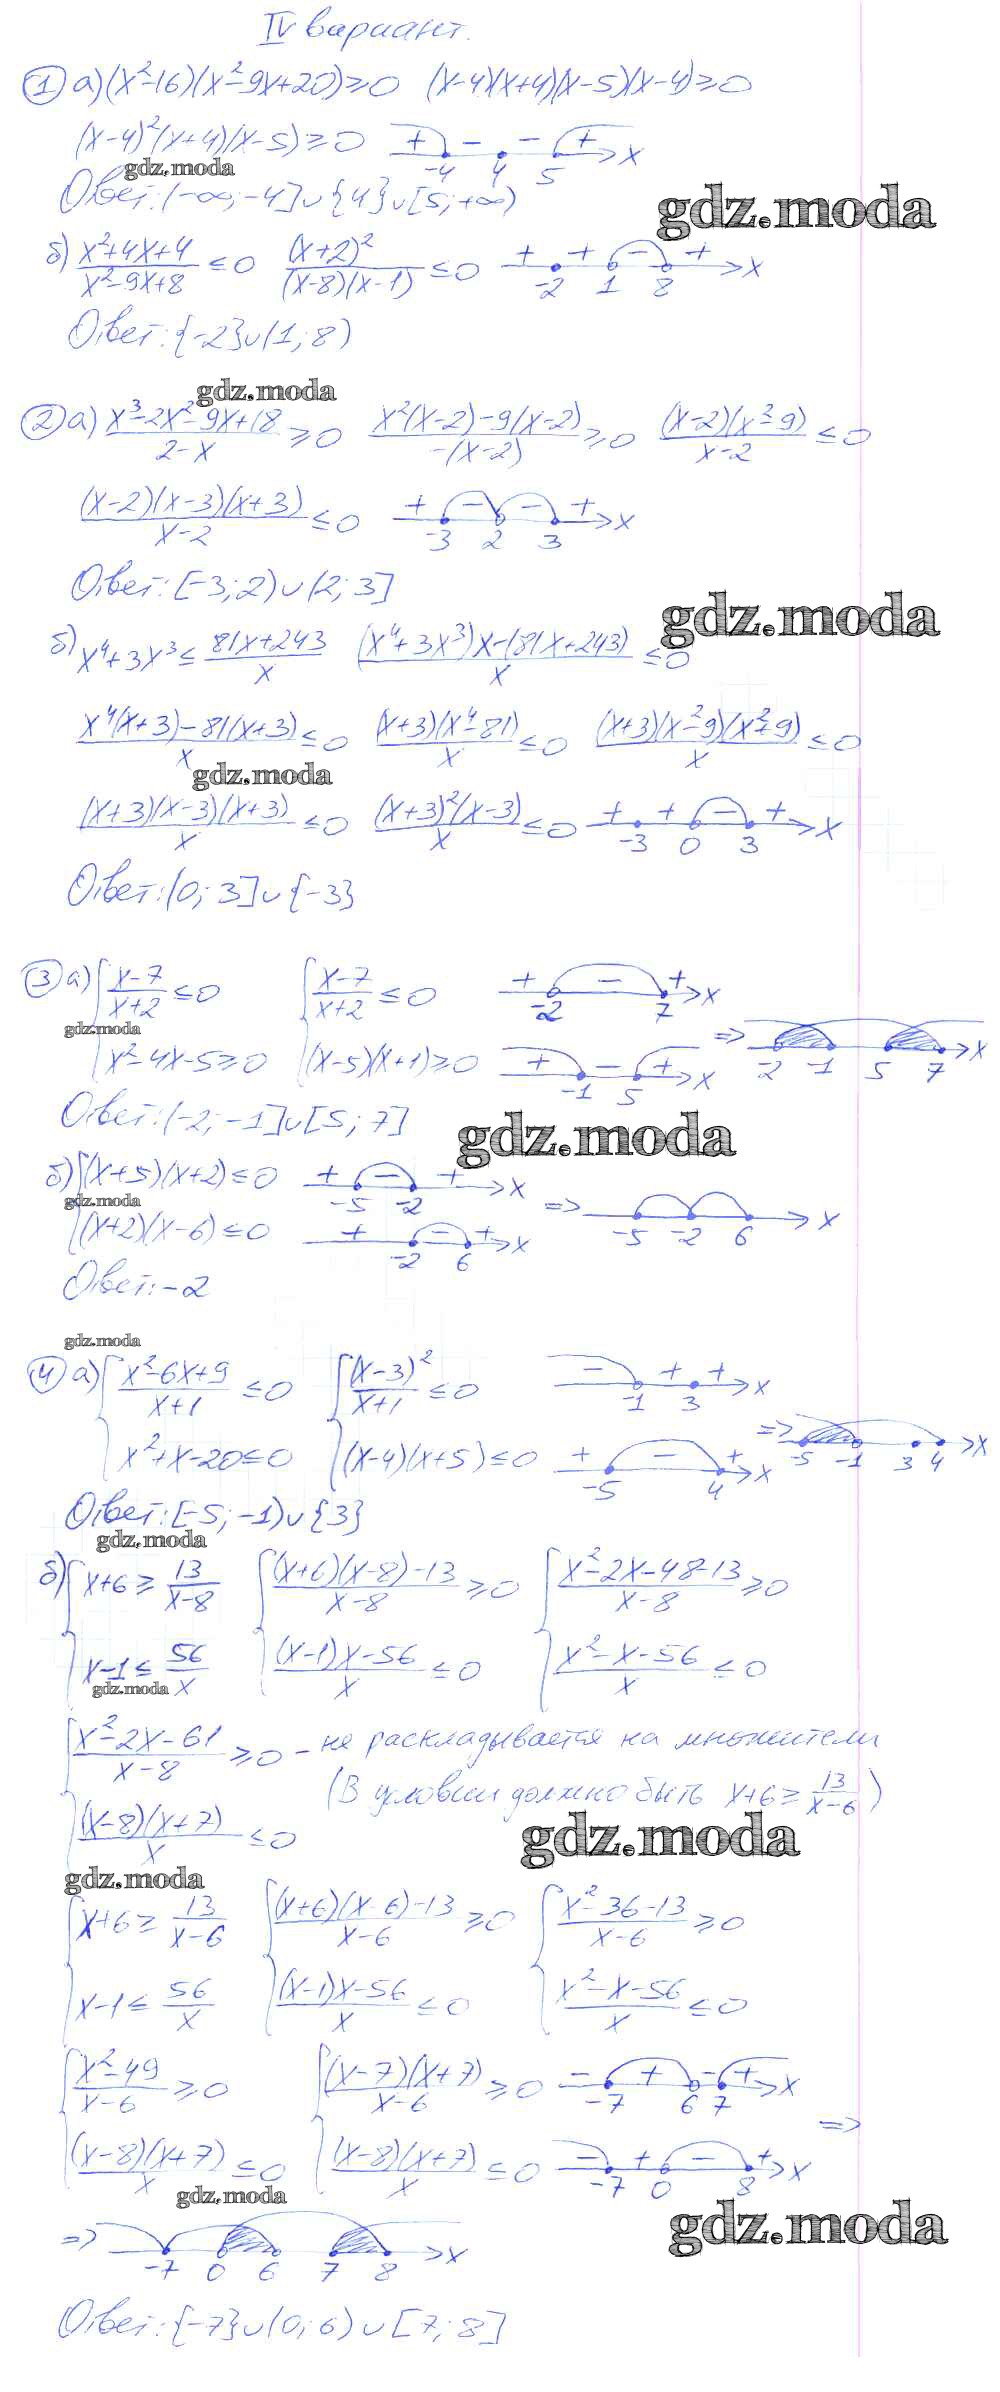 IV вариант.
1 а) (x²-16)(x²-9x+20)≥0 (x-4)(x+4)(x-5)(x-4)≥0
(x-4)²(x+4)(x-5)≥0 + - - + -4 4 5 x
gdz.moda
Ответ: (-∞; -4]∪{4}∪[5; +∞)
gdz.moda
б) (x²+4x+4)/(x²-9x+8) ≤0 (x+2)²/((x-8)(x-1)) ≤0 + + - + -2 1 8 x
Ответ: {-2}∪(1; 8)
gdz.moda
2 а) (x³-2x²-9x+18)/(2-x) ≥0 (x²(x-2)-9(x-2))/(-(x-2)) ≥0 ((x-2)(x²-9))/(x-2) ≤0
((x-2)(x-3)(x+3))/(x-2) ≤0 + - - + -3 2 3 x
Ответ: [-3; 2)∪(2; 3]
gdz.moda
б) x⁴+3x³≤(81x+243)/x ((x⁴+3x³)x-(81x+243))/x ≤0
(x⁴(x+3)-81(x+3))/x ≤0 ((x+3)(x⁴-81))/x ≤0 ((x+3)(x²-9)(x²+9))/x ≤0
gdz.moda
((x+3)(x-3)(x+3))/x ≤0 ((x+3)²(x-3))/x ≤0 + + - + -3 0 3 x
Ответ: (0; 3]∪{-3}
3 а) { (x-7)/(x+2) ≤0 { (x-7)/(x+2) ≤0 + - + -2 7 x
gdz.moda
=> -2 -1 5 7 x
x²-4x-5≥0 (x-5)(x+1)≥0 + - + -1 5 x
Ответ: (-2; -1]∪[5; 7]
gdz.moda
б) { (x+5)(x+2)≤0 + - + -5 -2 x => -5 -2 6 x
gdz.moda
(x+2)(x-6)≤0 + - + -2 6 x
Ответ: -2
gdz.moda
4 а) { (x²-6x+9)/(x+1) ≤0 { (x-3)²/(x+1) ≤0 - + + -1 3 x
=> -5 -1 3 4 x
x²+x-20≤0 (x-4)(x+5)≤0 + - + -5 4 x
Ответ: [-5; -1)∪{3}
gdz.moda
б) { x+6≥13/(x-8) { ((x+6)(x-8)-13)/(x-8) ≥0 { (x²-2x-48-13)/(x-8) ≥0
x-1≤56/x ((x-1)x-56)/x ≤0 (x²-x-56)/x ≤0
gdz.moda
{ (x²-2x-61)/(x-8) ≥0 – не раскладывается на множители
(В условии должно быть x+6≥13/(x-6))
((x-8)(x+7))/x ≤0
gdz.moda
gdz.moda
{ x+6≥13/(x-6) { ((x+6)(x-6)-13)/(x-6) ≥0 { (x²-36-13)/(x-6) ≥0
x-1≤56/x ((x-1)x-56)/x ≤0 (x²-x-56)/x ≤0
{ (x²-49)/(x-6) ≥0 { ((x-7)(x+7))/(x-6) ≥0 - + - + -7 6 7 x
=>
((x-8)(x+7))/x ≤0 ((x-8)(x+7))/x ≤0 - + - + -7 0 8 x
gdz.moda
gdz.moda
=> -7 0 6 7 8 x
Ответ: {-7}∪(0; 6)∪[7; 8]